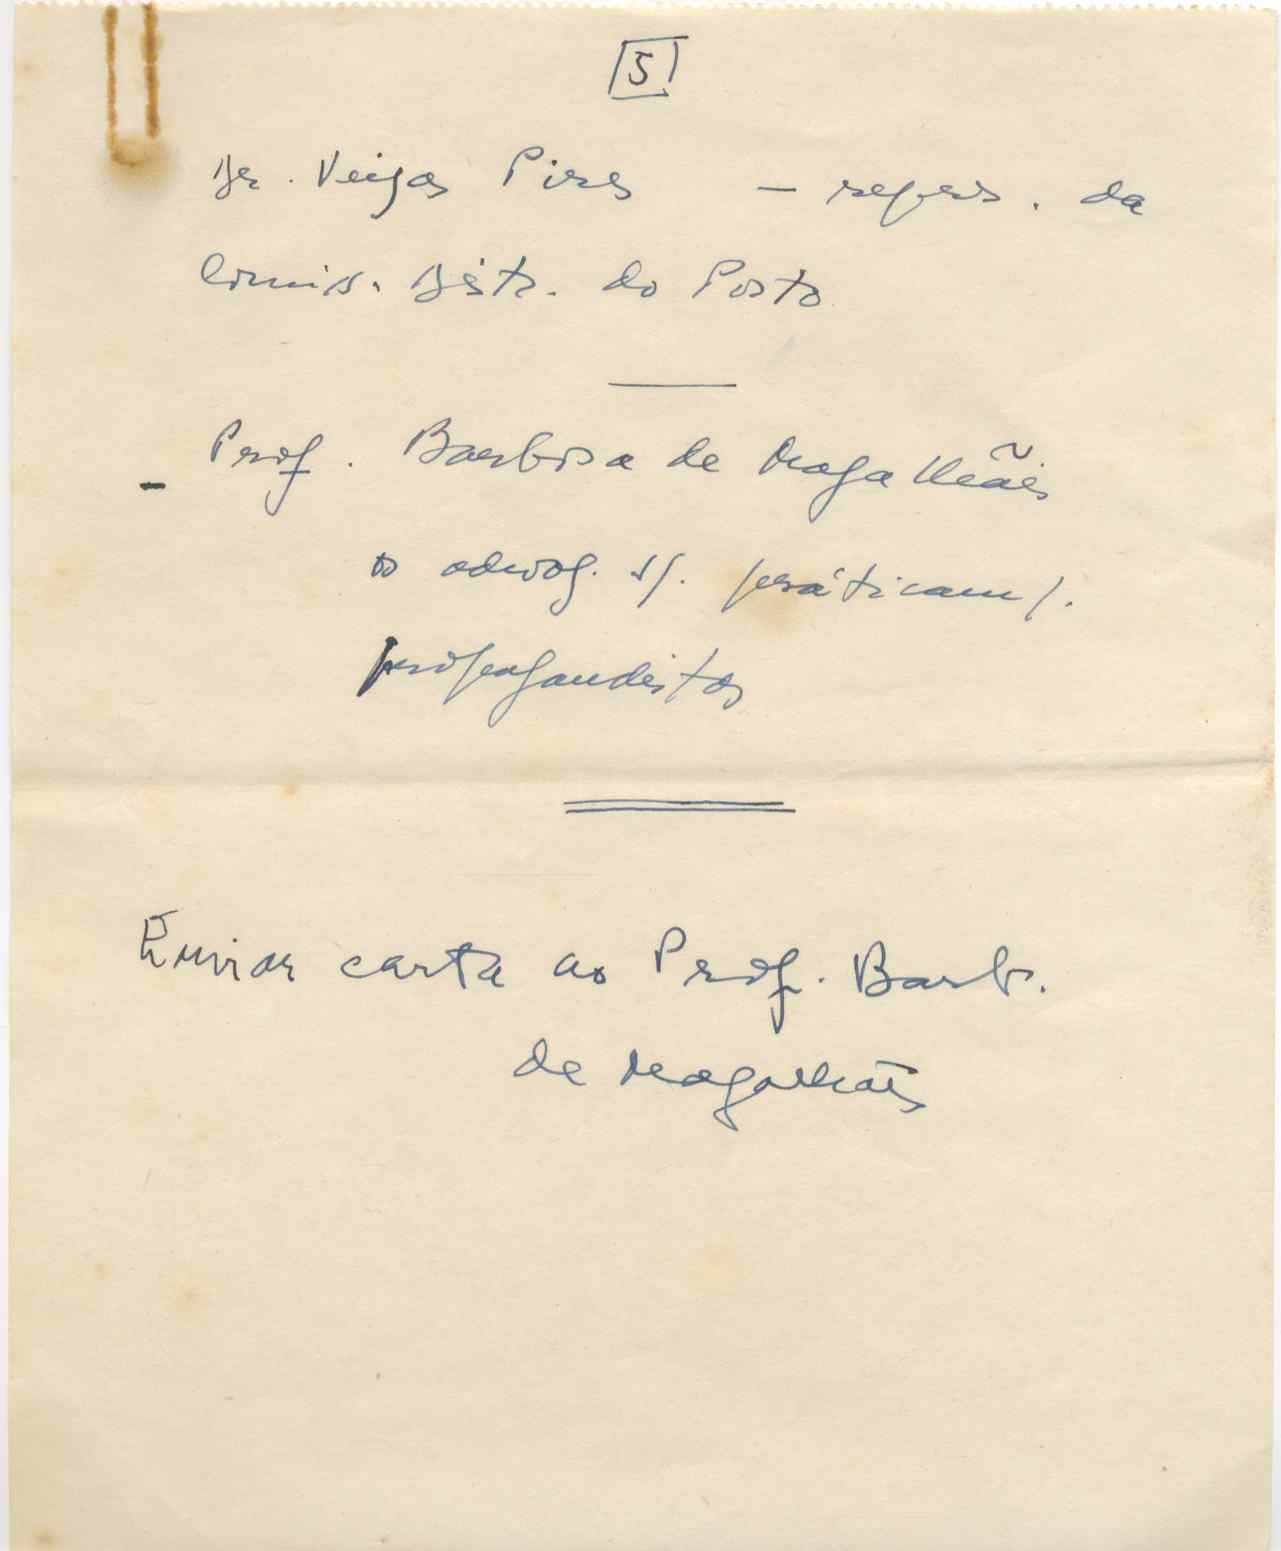 5
Dr. Veiga Pires — repres. da
Comiss. Distr. do Porto
- Prof. Barbosa de Magalhães
os advog. praticam/.
propagandistas
Enviar carta ao Prof. Barb.
de Magalhães